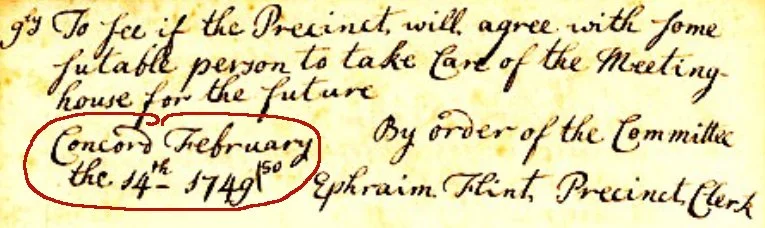 9ly To see if the Precinct, will, agree with some
sutable person to take Care of the Meeting-
house for the future
Concord February By order of the Committee
the 14th 1749/50 Ephraim Flint, Precinct, Clerk